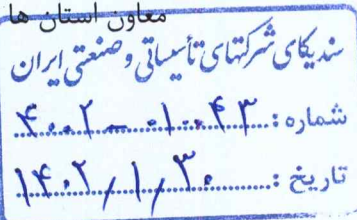 معاون استان ها
سندیکای شرکتهای تأسیساتی و صنعتی ایران
شماره: ۴۰۲-۰۱۰۰۴۳
تاریخ: ۱۴۰۲/۱/۳۰